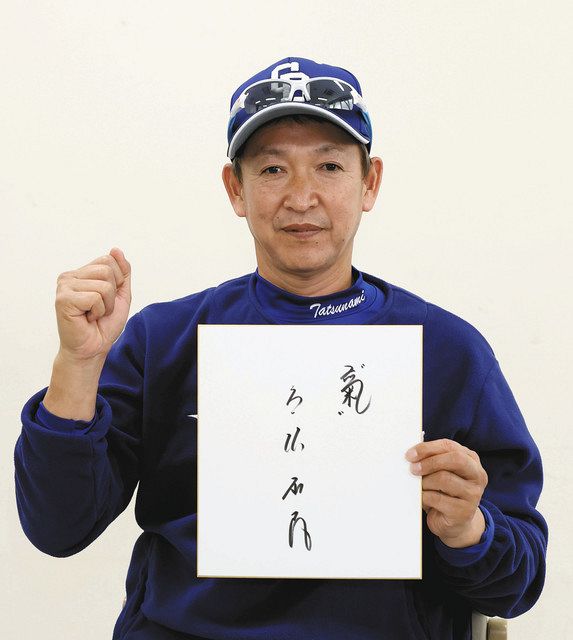 CD
Tatsunami
"氣"
立浪和義